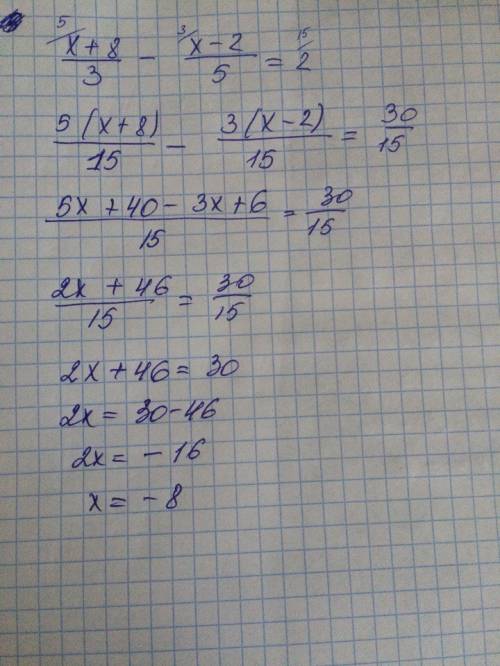 ⁵/(x+8)/3 − ³/(x−2)/5 = ¹⁵/2
5(x+8)/15 − 3(x−2)/15 = 30/15
(5x+40−3x+6)/15 = 30/15
(2x+46)/15 = 30/15
2x+46=30
2x=30−46
2x=−16
x=−8